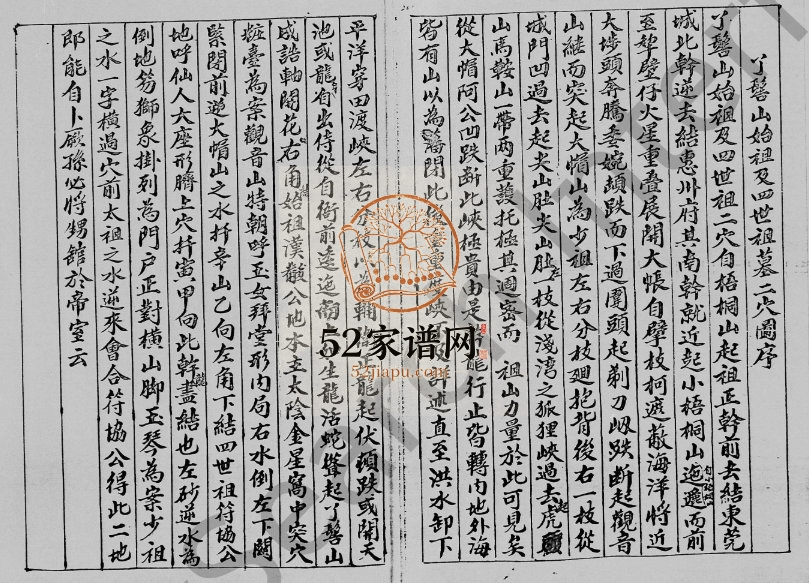 丫髻山始祖及四世祖墓二穴圖序
丫髻山始祖及四世祖二穴自梧桐山起祖正幹前去結東莞
城北幹逆去結惠州府其南幹就近起小梧桐山迤邐而前
至犂壁仔火星重叠展開大帳自擘枝柯遮蔽海洋將近
大埗頭奔騰委婉頓跌而下過圍頭起剃刀峒跌斷起觀音
山繼而突起大帽山為少祖左右分枝廻抱背後右一枝從
城門凹過去起尖山肚尖山肚一枝從淺灣之狐狸峽過去起虎頭
山馬鞍山一帶兩重護托極其週密而 祖山力量於此可見矣
從大帽阿公凹跌斷此峽極貴由是幹龍行止皆轉內地外海
皆有山以為藩閉此後重重度峽詳述直至洪水卸下
平洋穿田渡峽左右枝以為輔龍起伏頓跌或開天
池或龍自出侍從自衛前逶迤生龍活蛇聳起丫髻山
成誥軸開花右角結始祖漢黻公地水立太陰金星窩中突穴
粧臺為案觀音山特朝呼玉女拜堂形內局右水倒左下關
緊閉前逆大帽山之水扦辛山乙向左角下結四世祖符協公
地呼仙人大座形臍上穴扦寅甲向此幹龍盡結也左砂逆水為
倒地笏獅象掛列為門户正對橫山脚玉琴為案少祖
之水一字橫過穴前太祖之水逆來會合符協公得此二地
郎能自卜厥孫必將甥舘於帝室云
52家谱网
52jiapu.com